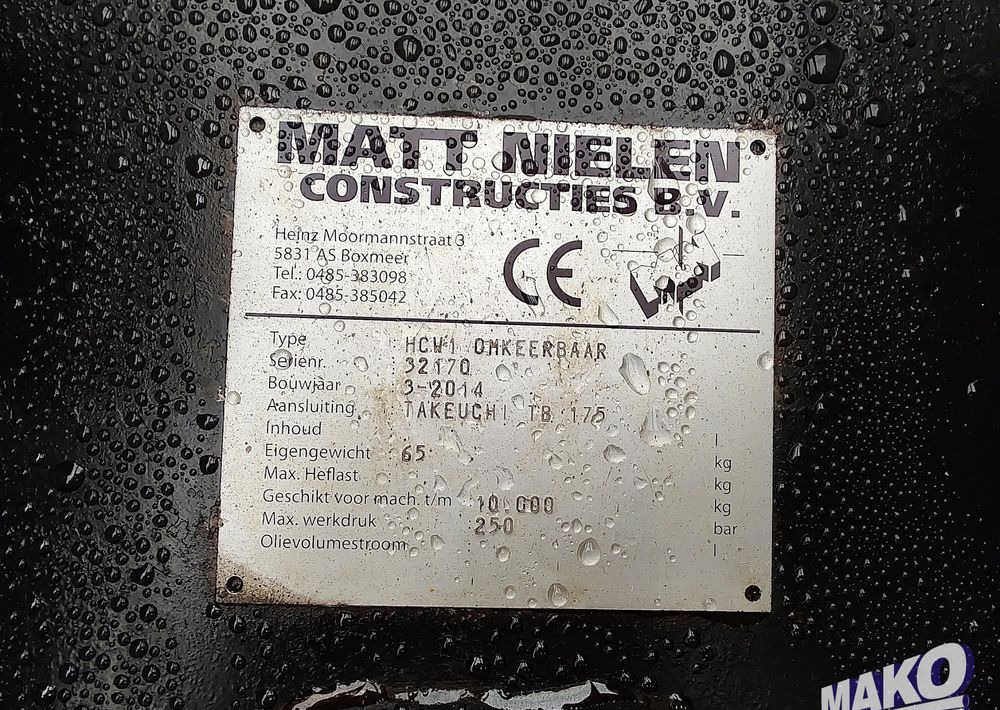 MATT NIELEN
CONSTRUCTIES B.V.
Heinz Moormannstraat 3
5831 AS Boxmeer
Tel.: 0485-383098
Fax: 0485-385042
CE
Type HCW1 OMKEERBAAR
Serienr. 32170
Bouwjaar 3-2014
Aansluiting TAKEUCHI TB 175
Inhoud l
Eigengewicht 65 kg
Max. Heflast kg
Geschikt voor mach. t/m 10.000 kg
Max. werkdruk 250 bar
Olievolumestroom l
MAKO